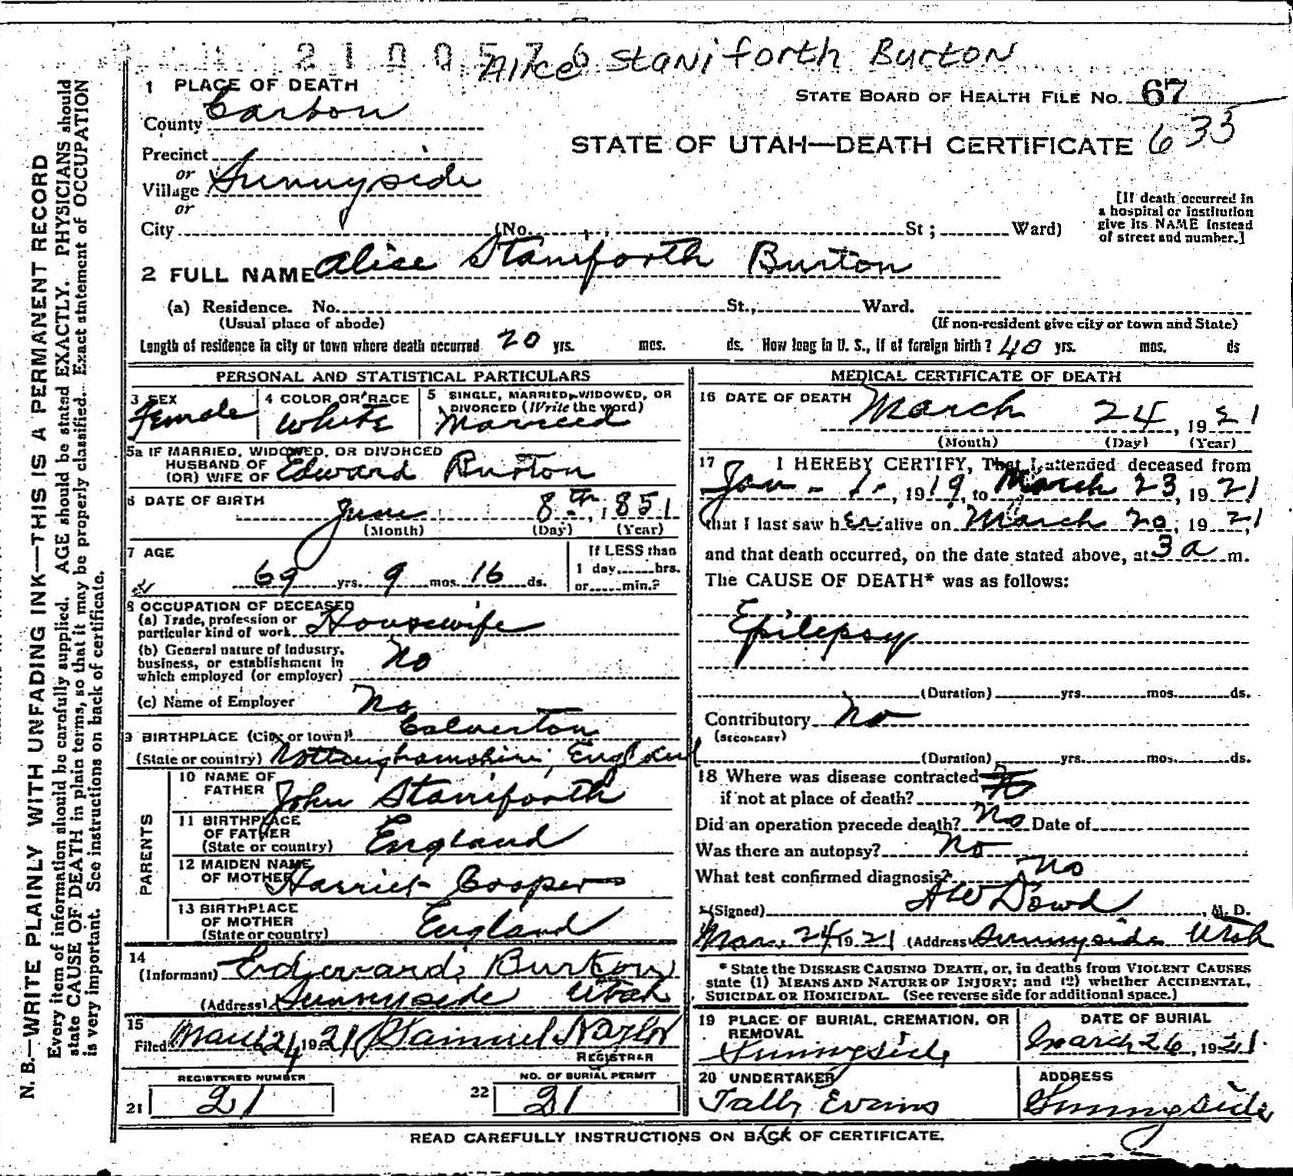 2100576
Alice Staniforth Burton
1 PLACE OF DEATH
County Carbon
STATE BOARD OF HEALTH FILE NO. 67
STATE OF UTAH—DEATH CERTIFICATE 633
Precinct
or
Village Sunnyside
or
City (No. St; Ward)
[If death occurred in
a hospital or institution
give its NAME instead
of street and number.]
2 FULL NAME Alice Staniforth Burton
(a) Residence. No. St., Ward.
(Usual place of abode) (If non-resident give city or town and State)
Length of residence in city or town where death occurred 20 yrs. mos. ds. How long in U. S., if of foreign birth? 40 yrs. mos. ds
PERSONAL AND STATISTICAL PARTICULARS
3 SEX Female
4 COLOR OR RACE White
5 SINGLE, MARRIED, WIDOWED, OR
DIVORCED (Write the word)
Married
5a IF MARRIED, WIDOWED, OR DIVORCED
HUSBAND OF
(OR) WIFE OF Edward Burton
6 DATE OF BIRTH
June 8th, 1851
(Month) (Day) (Year)
7 AGE
69 yrs. 9 mos. 16 ds.
If LESS than
1 day, hrs.
or min.?
8 OCCUPATION OF DECEASED
(a) Trade, profession or
particular kind of work Housewife
(b) General nature of industry,
business, or establishment in
which employed (or employer) No
(c) Name of Employer No
9 BIRTHPLACE (City or town) Calverton
(State or country) Nottinghamshire, England
PARENTS
10 NAME OF
FATHER John Staniforth
11 BIRTHPLACE
OF FATHER
(State or country) England
12 MAIDEN NAME
OF MOTHER Harriet Cooper
13 BIRTHPLACE
OF MOTHER
(State or country) England
14
(Informant) Edward Burton
(Address) Sunnyside Utah
15
Filed March 24, 1921 Samuel Naylor
REGISTRAR
REGISTERED NUMBER
21 21
NO. OF BURIAL PERMIT
22 21
MEDICAL CERTIFICATE OF DEATH
16 DATE OF DEATH March 24, 1921
(Month) (Day) (Year)
17 I HEREBY CERTIFY, That I attended deceased from
Jan - 1 -, 1919, to March 23, 1921
that I last saw her alive on March 20, 1921,
and that death occurred, on the date stated above, at 3a m.
The CAUSE OF DEATH* was as follows:
Epilepsy
(Duration) yrs. mos. ds.
Contributory No
(SECONDARY)
(Duration) yrs. mos. ds.
18 Where was disease contracted
if not at place of death?
Did an operation precede death? No Date of
Was there an autopsy? No
What test confirmed diagnosis? No
(Signed) A W Dowd, M. D.
Mar. 24 1921 (Address Sunnyside Utah
* State the DISEASE CAUSING DEATH, or, in deaths from VIOLENT CAUSES
state (1) MEANS AND NATURE OF INJURY; and (2) whether ACCIDENTAL,
SUICIDAL OR HOMICIDAL. (See reverse side for additional space.)
19 PLACE OF BURIAL, CREMATION, OR
REMOVAL
Sunnyside
DATE OF BURIAL
March 26, 1921.
20 UNDERTAKER
Tally Evans
ADDRESS
Sunnyside
READ CAREFULLY INSTRUCTIONS ON BACK OF CERTIFICATE.
N. B.—WRITE PLAINLY WITH UNFADING INK—THIS IS A PERMANENT RECORD
Every item of information should be carefully supplied. AGE should be stated EXACTLY. PHYSICIANS should
state CAUSE OF DEATH in plain terms, so that it may be properly classified. Exact statement of OCCUPATION
is very important. See instructions on back of certificate.